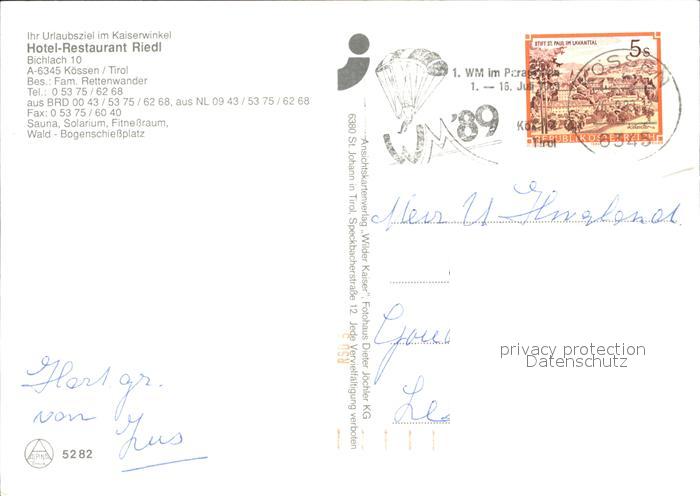 Ihr Urlaubsziel im Kaiserwinkel
Hotel-Restaurant Riedl
Bichlach 10
A-6345 Kössen / Tirol
Bes.: Fam. Rettenwander
Tel.: 0 53 75 / 62 68
aus BRD 00 43 / 53 75 / 62 68, aus NL 09 43 / 53 75 / 62 68
Fax: 0 53 75 / 60 40
Sauna, Solarium, Fitneßraum,
Wald - Bogenschießplatz
1. WM im
1. — 15. Juli
WM '89
Tirol
STIFT ST. PAUL IM LAVANTTAL
5s
REPUBLIK ÖSTERREICH
KÖSSEN
Ansichtskartenverlag „Wilder Kaiser", Fotohaus Dieter Jöchler KG
6380 St. Johann in Tirol, Speckbacherstraße 12. Jede Vervielfältigung verboten
privacy protection
Datenschutz
Hart gr.
van
5282